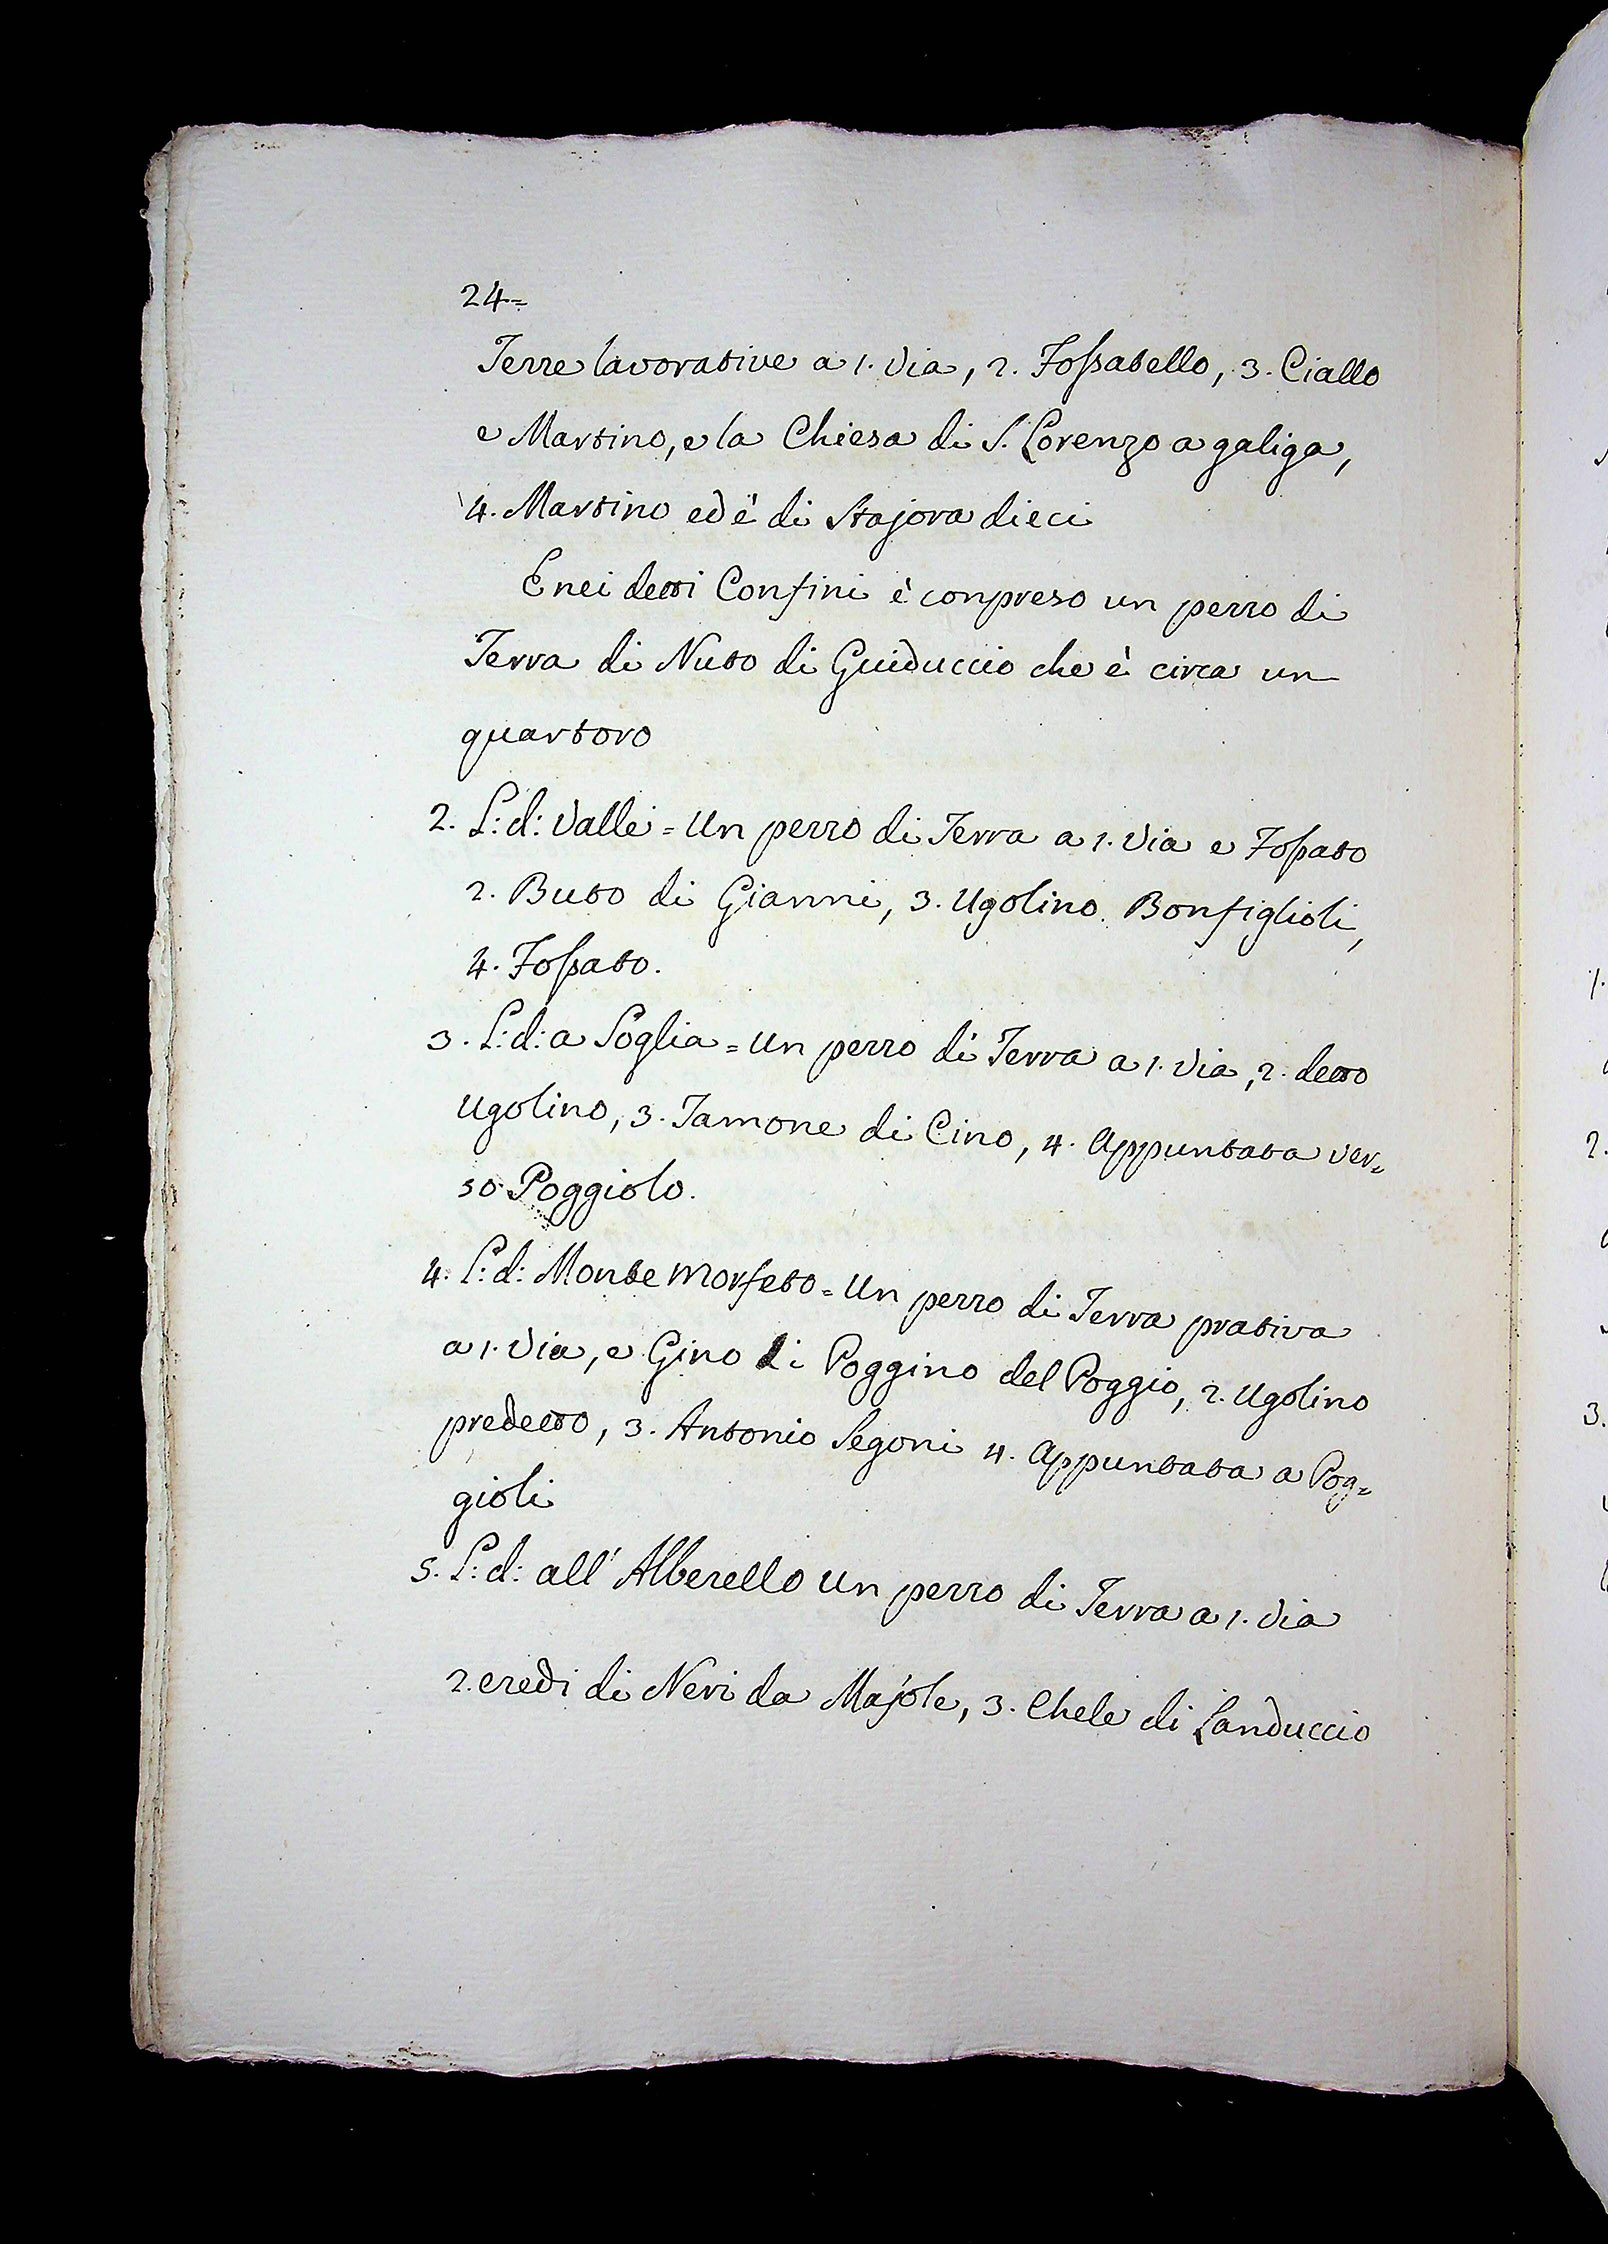 24=
Terre lavorative a 1. Via, 2. Fossatello, 3. Ciallo
e Martino, e la Chiesa di S. Lorenzo a galiga,
4. Martino ed è di Stajora dieci
E nei detti Confini è conpreso un pezzo di
Terra di Nuto di Guiduccio che è circa un
quartoro
2. L: d: Valle = Un pezzo di Terra a 1. Via e Fossato
2. Buto di Gianni, 3. Ugolino Bonfiglioli,
4. Fossato.
3. L: d: a Soglia = Un pezzo di Terra a 1. Via, 2. detto
Ugolino, 3. Tamone di Cino, 4. Appuntata ver=
so Poggiolo.
4. L: d: Monte Morfeto = Un pezzo di Terra prativa
a 1. Via, e Gino di Poggino del Poggio, 2. Ugolino
predetto, 3. Antonio Segoni 4. Appuntata a Pog=
gioli
5. L: d: all' Alberello Un pezzo di Terra a 1. Via
2. eredi di Neri da Majole, 3. Chele di Landuccio
1.
2.
3.